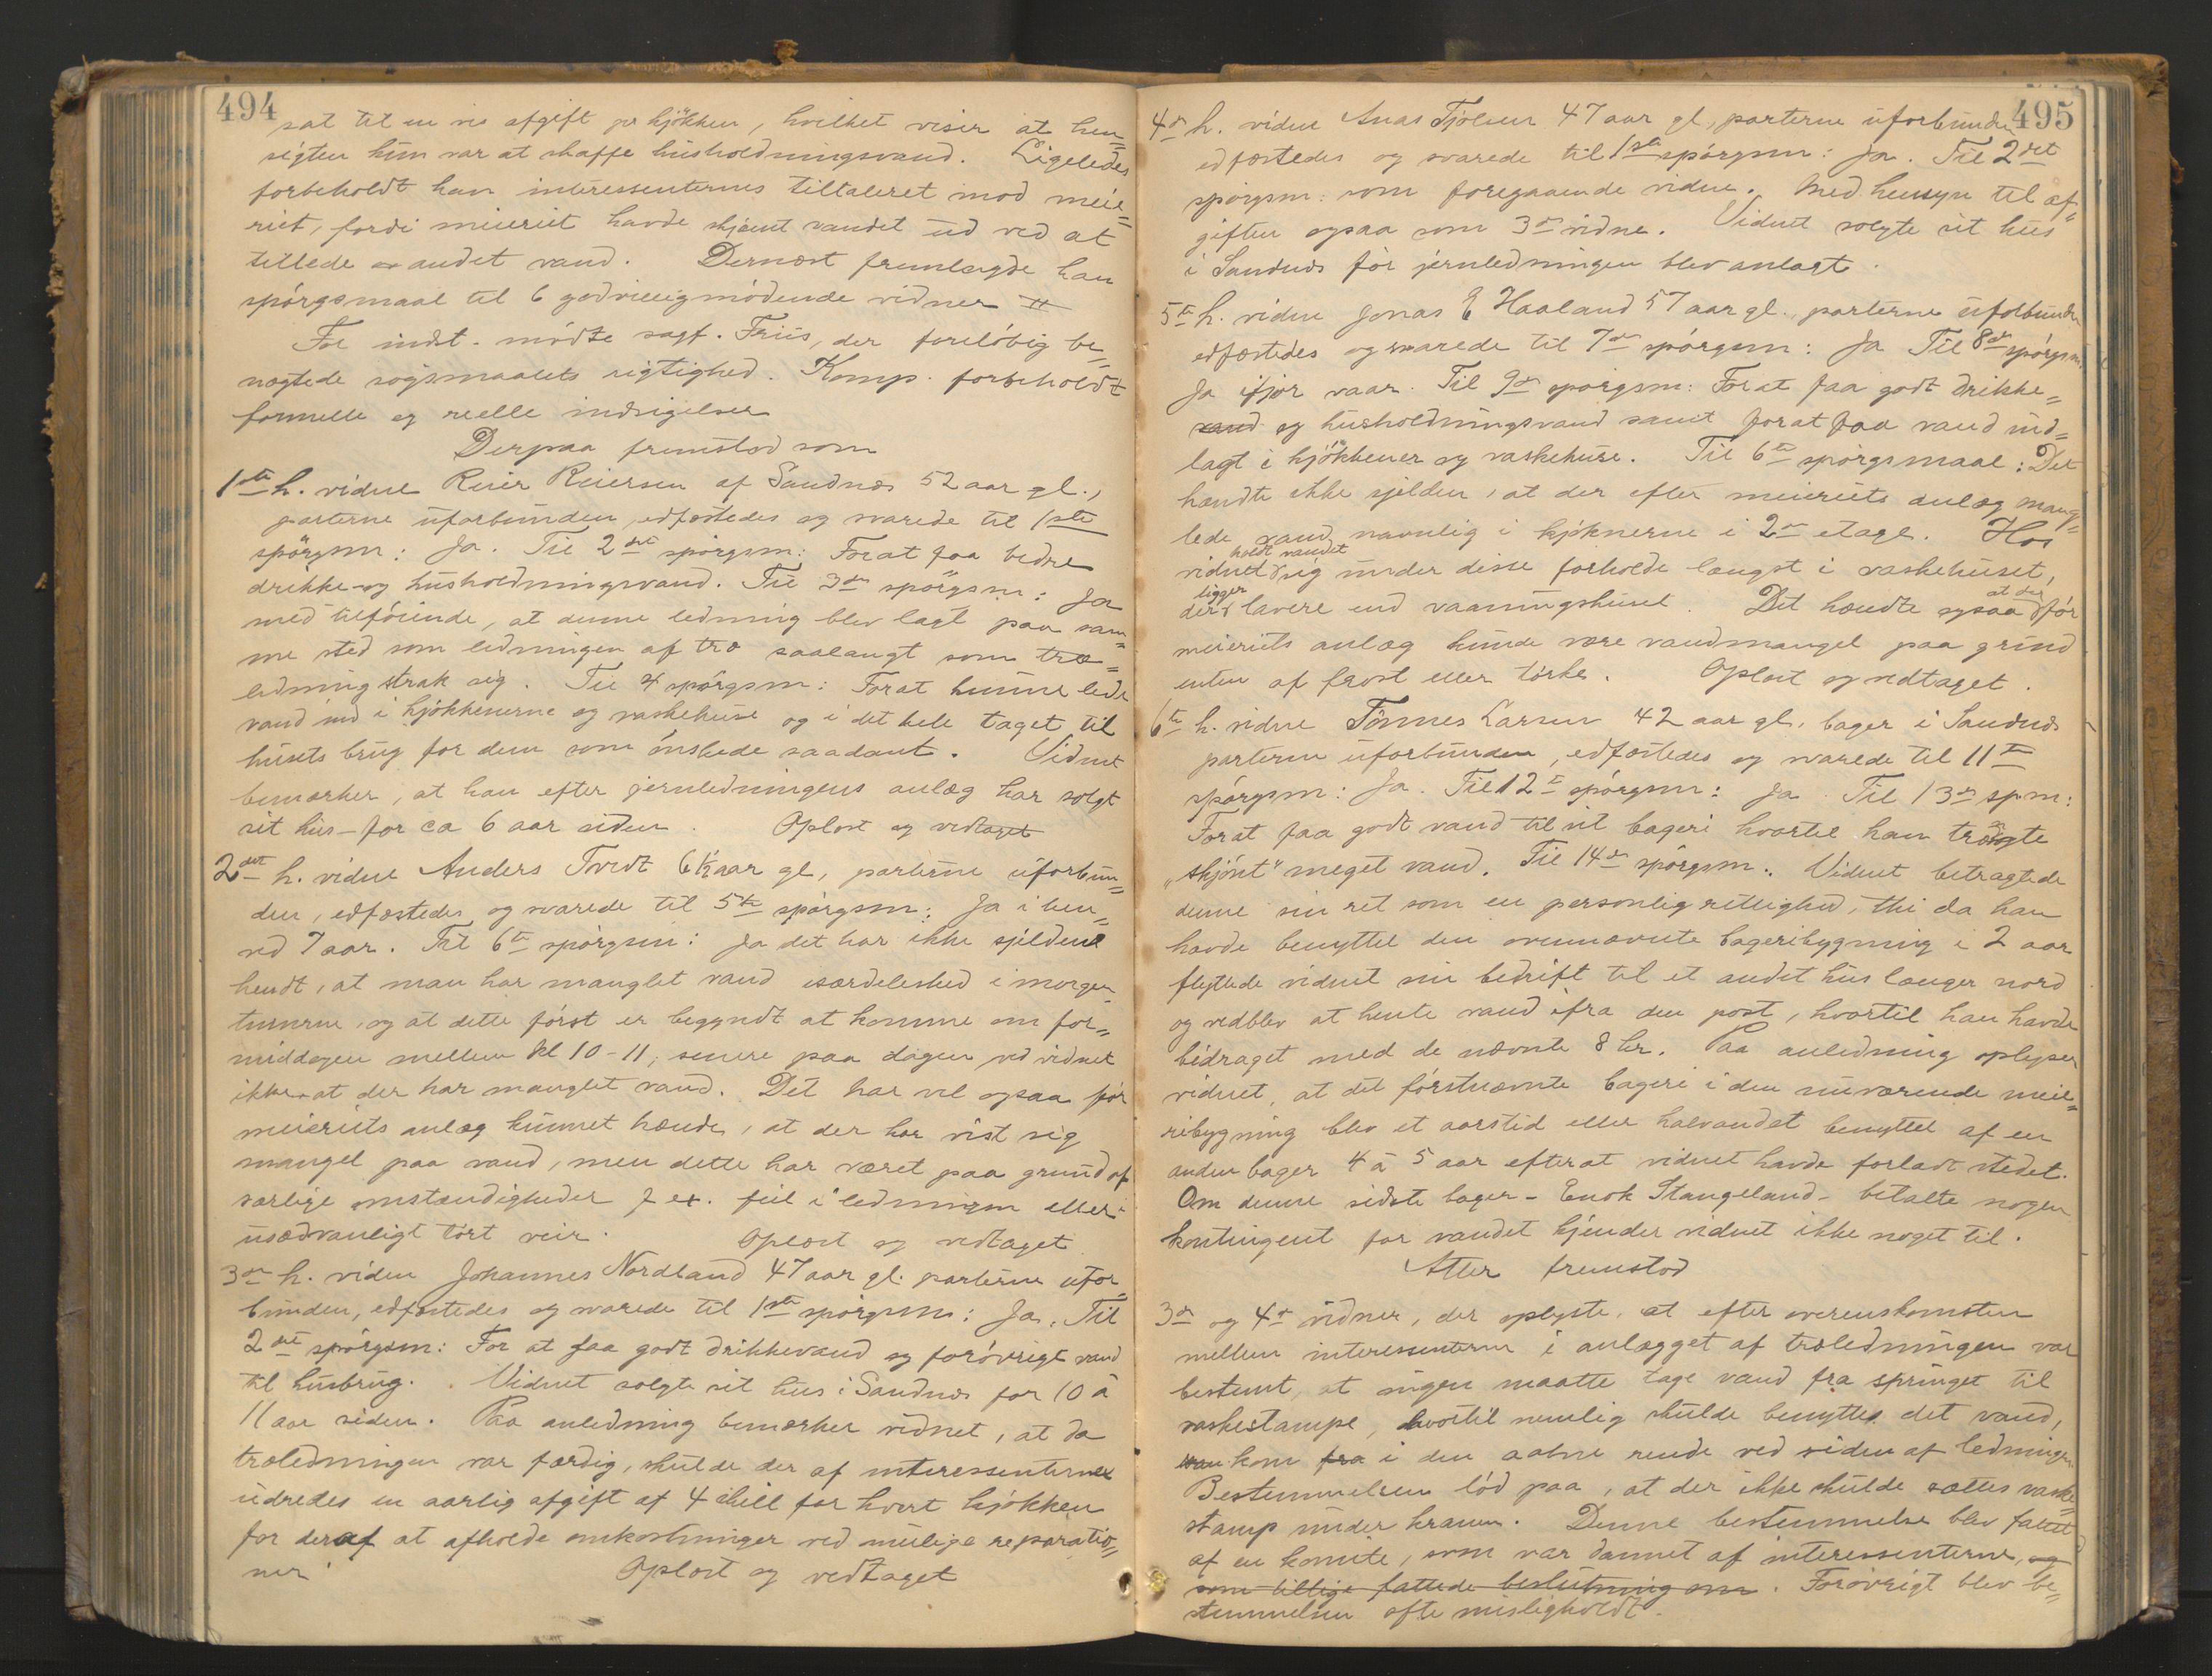 494
sat til en vis afgift pr kjökken, hvilket viser at hen=
sigten kun var at skaffe husholdningsvand. Ligeledes
forbeholdt han interessenternes tiltaleret mod meie=
riet, fordi meieriet havde skjæmt vandet ud ved at
tillede andet vand. Dernæst fremlagde han
spörgsmaal til 6 godvillig mödende vidner #
For indst. mödte sagf. Friis, der foreløbig be=
nægtede sögsmaalets rigtighed. Komp. forbeholdt
formelle og reelle indsigelser
Derpaa fremstod som
1ste h. vidne Reier Reiersen af Sandnæs 52 aar gl.,
parterne uforbunden, edfæstedes og svarede til 1ste
spörgsm: Ja. Til 2det spörgsm: Forat faa bedre
drikke- og husholdningsvand. Til 3die spörgsm: Ja
med tilföiende, at denne ledning blev lagt paa sam=
me sted som ledningen af træ saalangt som træ=
ledning strak sig. Til 4 spörgsm: Forat kunne lede
vand ind i kjökkenerne og vaskehuse og i det hele taget til
husets brug for dem som önskede saadant. Vidnet
bemærker, at han efter jernledningens anlæg har solgt
sit hus - for ca 6 aar siden. Oplæst og vedtaget
2det h. vidne Anders Tvedt 61½ aar gl, parterne uforbun=
den, edfæstedes og svarede til 5te spörgsm: Ja i hen=
ved 7 aar. Til 6te spörgsm: Ja det har ikke sjeldent
hendt, at man har manglet vand særdeleshed i morgen=
timerne, og at dette först er begyndt at komme om for=
middagen mellem kl 10-11, senere paa dagen ved vidnet
ikke at der har manglet vand. Det har vel ogsaa för
meieriets anlæg kunnet hænde, at der har vist sig
mangel paa vand, men dette har været paa grund af
særlige omstændigheder f ex. feil i ledningen eller
usædvanligt tört veir. Oplæst og vedtaget
3die h. vidne Johannes Nordland 47 aar gl. parterne ufor=
bunden, edfæstedes og svarede til 1ste spörgsm: Ja. Til
2det spörgsm: For at faa godt drikkevand og forövrigt vand
til husbrug. Vidnet solgte sit hus i Sandnæs for 10 à
11 aar siden. Paa anledning bemærker vidnet, at da
træledningen var færdig, skulde der af interessenterne
udredes en aarlig afgift af 4 skill for hvert kjökken
for deraf at afholde omkostninger ved mulige reparatio=
ner. Oplæst og vedtaget
495
4de h. vidne Anas Tjölsen 47 aar gl, parterne uforbunden
edfæstedes og svarede til 1ste spörgsm: Ja. Til 2det
spörgsm: som foregaaende vidne. Med hensyn til af=
giften ogsaa som 3die vidne. Vidnet solgte sit hus
i Sandnæs för jernledningen blev anlagt.
5te h. vidne Jonas E Haaland 57 aar gl. parterne uforbunden
edfæstedes og svarede til 7de spörgsm: Ja Til 8de spörgsm:
Ja ifjor vaar. Til 9de spörgsm: Forat faa godt drikke=
vand og husholdningsvand samt forat faa vand ind=
lagt i kjökkener og vaskehuse. Til 6te spörgsmaal: Det
hændte ikke sjelden, at der efter meieriets anlæg mang=
lede vand navnlig i kjöknerne i 2den etage. Hos
holdt vandet
vidnet sig under disse forholde længst i vaskehuset,
ligger at der
der lavere end vaaningshuset. Det hændte ogsaa för
meieriets anlæg kunde være vandmangel paa grund
enten af frost eller törke. Oplæst og vedtaget.
6te h. vidne Tönnes Larsen 42 aar gl. bager i Sandnæs
parterne uforbunden, edfæstedes og svarede til 11te
spörgsm: Ja. Til 12te spörgsm: Ja Til 13de spm:
Forat faa godt vand til sit bageri hvortil han trængte
"skjönt" meget vand. Til 14de spörgsm. Vidnet betragtede
denne sin ret som en personlig rettighed, thi da han
havde benyttet den ovennævnte bageribygning i 2 aar
flyttede vidnet sin bedrift til et andet hus længer nord
og vedblev at hente vand ifra den post, hvortil han havde
bidraget med de nævnte 8 kr. Paa anledning oplyser
vidnet, at det förstnævnte bageri i den nuværende meie=
ribygning blev et aarstid eller halvandet benyttet af en
anden bager 4 à 5 aar efterat vidnet havde forladt stedet.
Om denne sidste bager - Enok Stangeland - betalte nogen
kontingent for vandet kjender vidnet ikke noget til.
Atter fremstod
3die og 4de vidner, der oplyste, at efter overenskomsten
mellem interessenterne i anlægget af træledningen var
bestemt, at ingen maatte tage vand fra springet til
vaskestampe, hvortil nemlig skulde benyttes det vand,
kom fra i den aabne rende ved siden af ledningen
Bestemmelsen löd paa, at der ikke skulde sættes vaske=
stamp under kranen. Denne bestemmelse blev fattet
af en komite, som var dannet af interessenterne, og
som tillige fattede beslutning om. Forövrigt blev be=
stemmelsen ofte misligholdt.